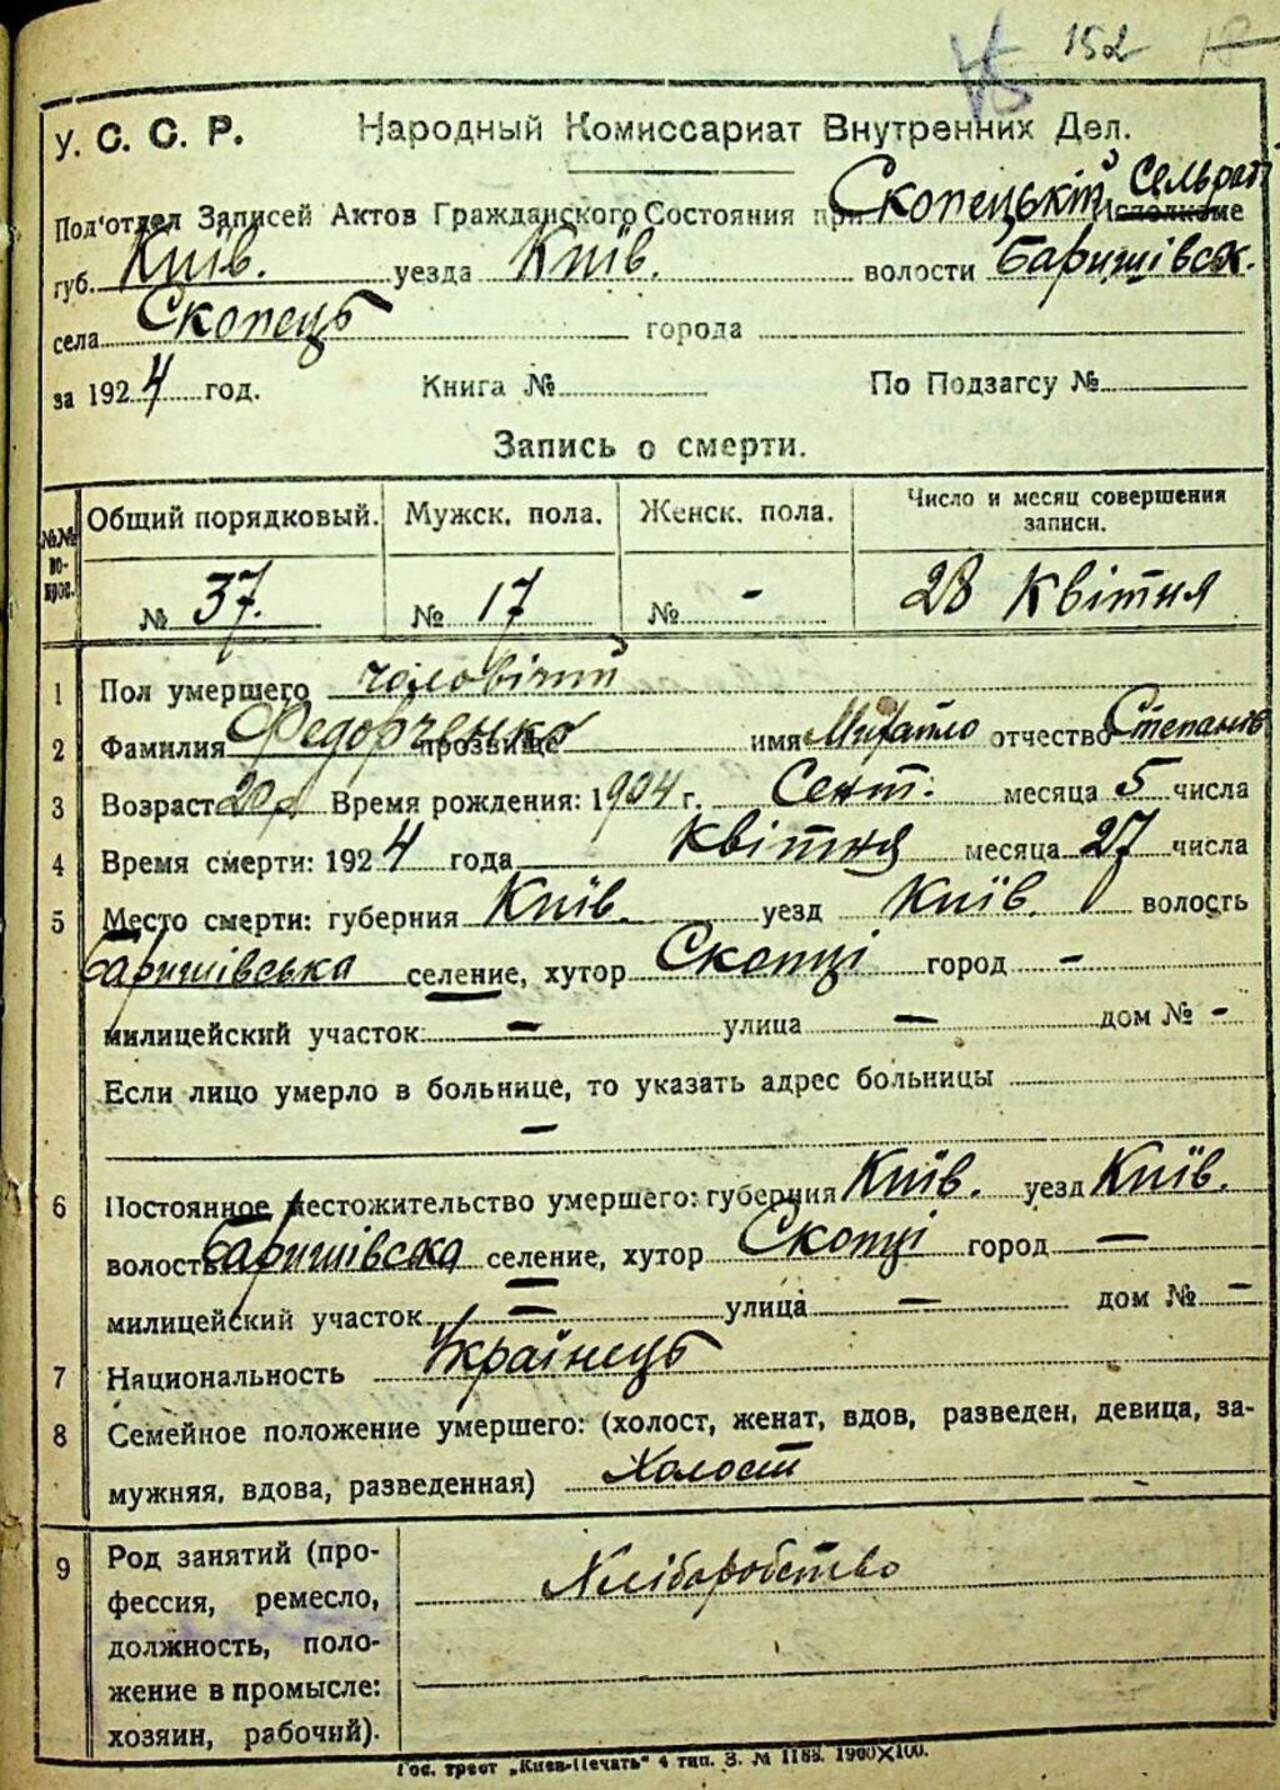 152
У. С. С. Р. Народный Комиссариат Внутренних Дел.
Под'отдел Записей Актов Гражданского Состояния при Скопецькій Сельраді Исполкоме
губ. Київ. уезда Київ. волости Баришівськ.
села Скопець города
за 1924 год. Книга № По Подзагсу №
Запись о смерти.
№№ во-прос. Общий порядковый. Мужск. пола. Женск. пола. Число и месяц совершения записи.
№ 37. № 17 № - 28 Квітня
1 Пол умершего чоловічий
2 Фамилия Федорченко прозвище имя Михайло отчество Степанів
3 Возраст 20 р. Время рождения: 1904 г. Сент: месяца 5 числа
4 Время смерти: 1924 года Квітня месяца 27 числа
5 Место смерти: губерния Київ. уезд Київ. волость
Баришівська селение, хутор Скопці город -
милицейский участок — улица — дом № -
Если лицо умерло в больнице, то указать адрес больницы
—
6 Постоянное местожительство умершего: губерния Київ. уезд Київ.
волость Баришівська селение, хутор Скопці город —
милицейский участок — улица — дом № —
7 Национальность Українець
8 Семейное положение умершего: (холост, женат, вдов, разведен, девица, за-
мужняя, вдова, разведенная) Холост
9 Род занятий (про-
фессия, ремесло,
должность, поло-
жение в промысле:
хозяин, рабочий).
Хліборобство
Гос. трест „Киев-Печать" 4 тип. З. № 1188. 1900×100.